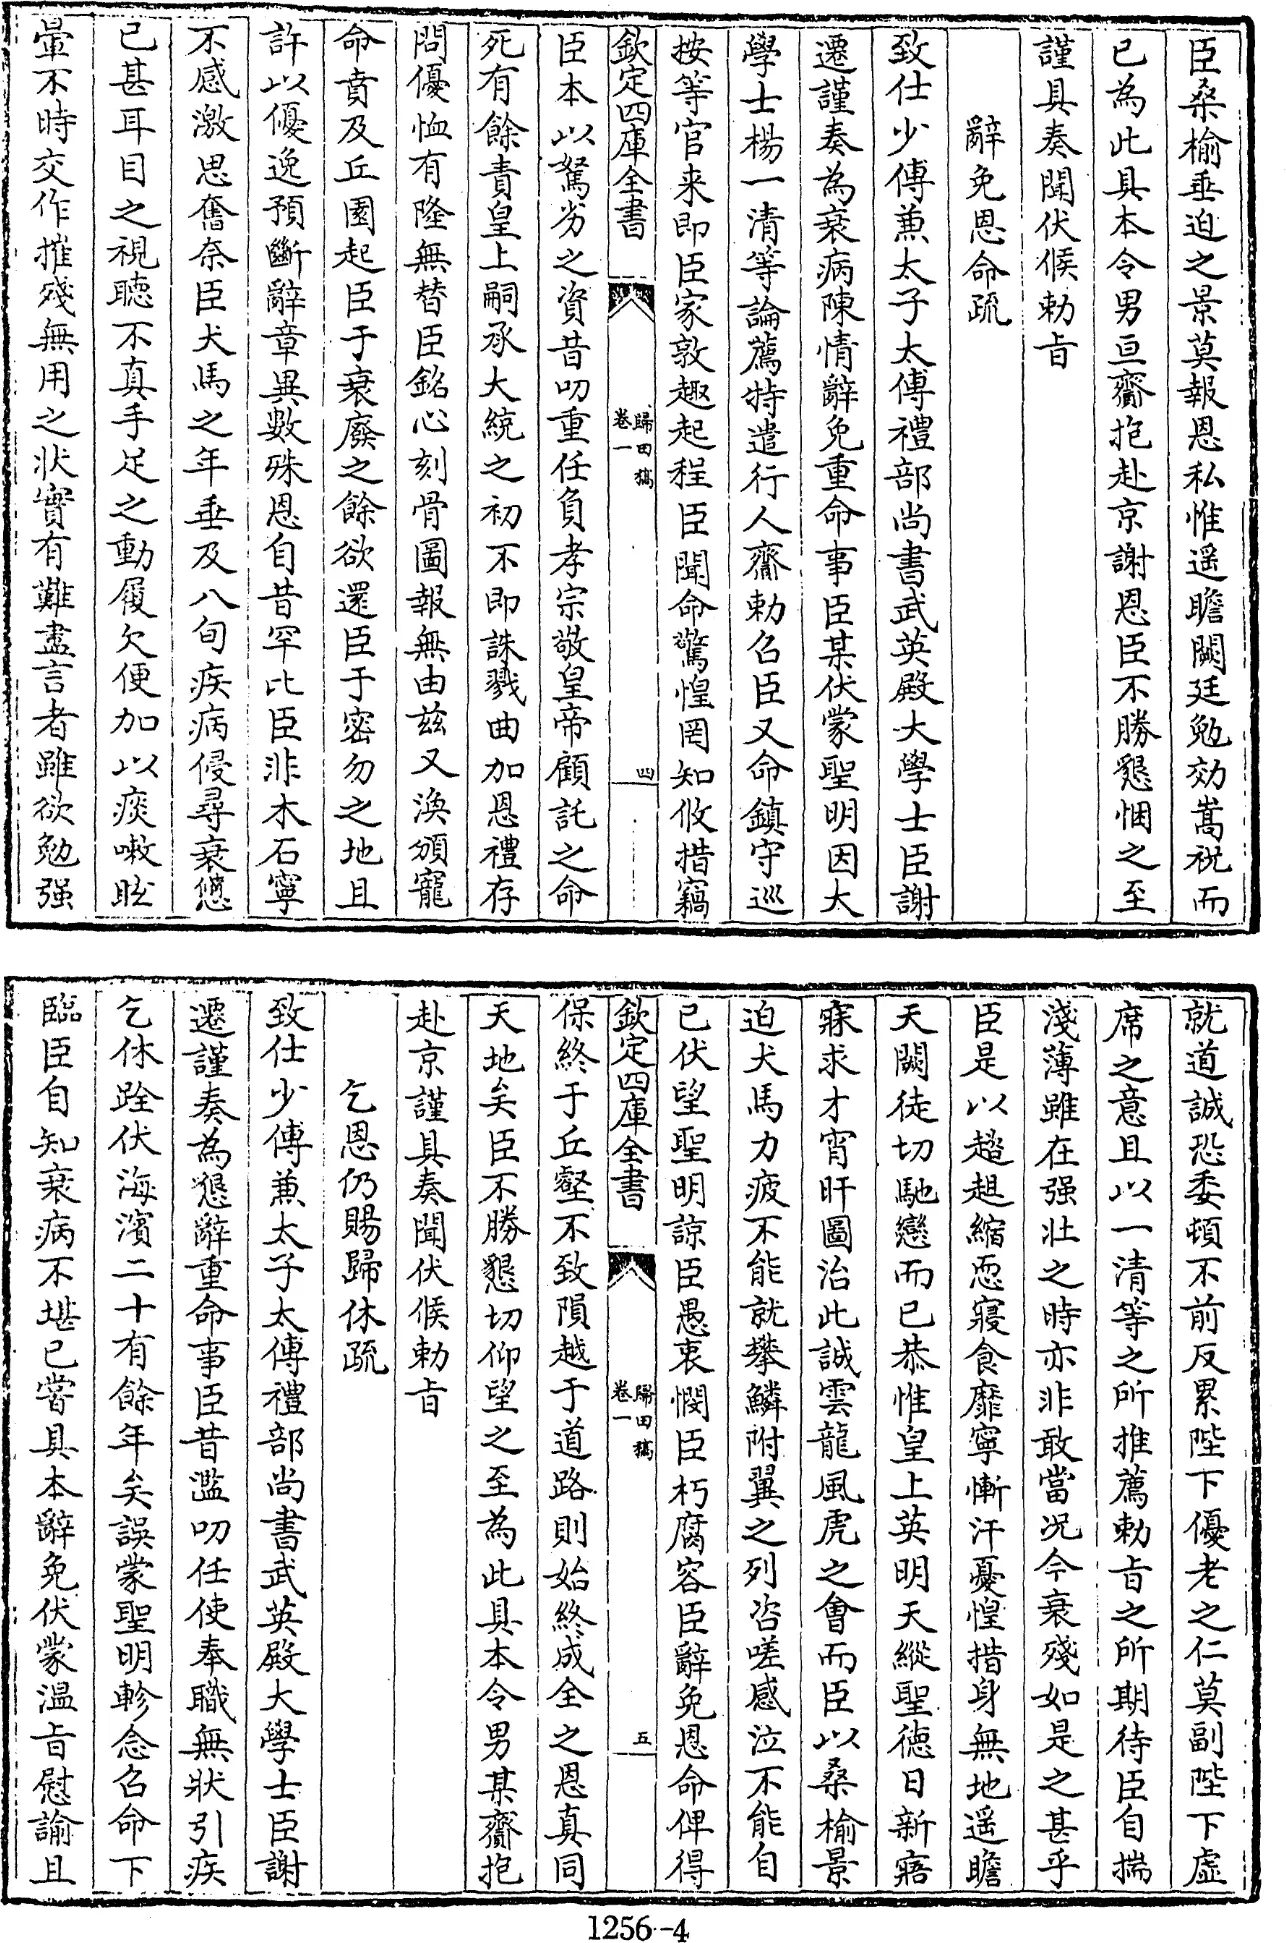 臣桑榆垂迫之景莫報恩私惟遥瞻闕廷勉効嵩祝而
已為此具本令男亘齎抱赴京謝恩臣不勝懇悃之至
謹具奏聞伏候勅㫖
辭免恩命疏
致仕少傅兼太子太傅禮部尚書武英殿大學士臣謝
遷謹奏為衰病陳情辭免重命事臣某伏蒙聖明因大
學士楊一清等論薦特遣行人齎勅召臣又命鎮守巡
按等官来即臣家敦趣起程臣聞命驚惶罔知攸措竊
欽定四庫全書
歸田稿
卷一
四
臣本以駑劣之資昔叨重任負孝宗敬皇帝顧託之命
死有餘責皇上嗣承大統之初不即誅戮曲加恩禮存
問優恤有隆無替臣銘心刻骨圖報無由兹又渙頒寵
命賁及丘園起臣于衰廢之餘欲還臣于密勿之地且
許以優逸預斷辭章異數殊恩自昔罕比臣非木石寧
不感激思奮奈臣犬馬之年垂及八旬疾病侵尋衰憊
已甚耳目之視聽不真手足之動履欠便加以痰嗽眩
暈不時交作摧殘無用之狀實有難盡言者雖欲勉强
就道誠恐委頓不前反累陛下優老之仁莫副陛下虚
席之意且以一清等之所推薦勅㫖之所期待臣自揣
淺薄雖在强壯之時亦非敢當况今衰殘如是之甚乎
臣是以趦趄縮恧寢食靡寧慚汗憂惶措身無地遥瞻
天闕徒切馳戀而已恭惟皇上英明天縱聖德日新寤
寐求才宵旰圖治此誠雲龍風虎之會而臣以桑榆景
迫犬馬力疲不能就攀鱗附翼之列咨嗟感泣不能自
已伏望聖明諒臣愚衷憫臣朽腐容臣辭免恩命俾得
欽定四庫全書
歸田稿
卷一
五
保終于丘壑不致隕越于道路則始終成全之恩真同
天地矣臣不勝懇切仰望之至為此具本令男某齎抱
赴京謹具奏聞伏候勅㫖
乞恩仍賜歸休疏
致仕少傅兼太子太傅禮部尚書武英殿大學士臣謝
遷謹奏為懇辭重命事臣昔濫叨任使奉職無狀引疾
乞休跧伏海濱二十有餘年矣誤蒙聖明軫念召命下
臨臣自知衰病不堪已嘗具本辭免伏蒙温㫖慰諭且
1256-4